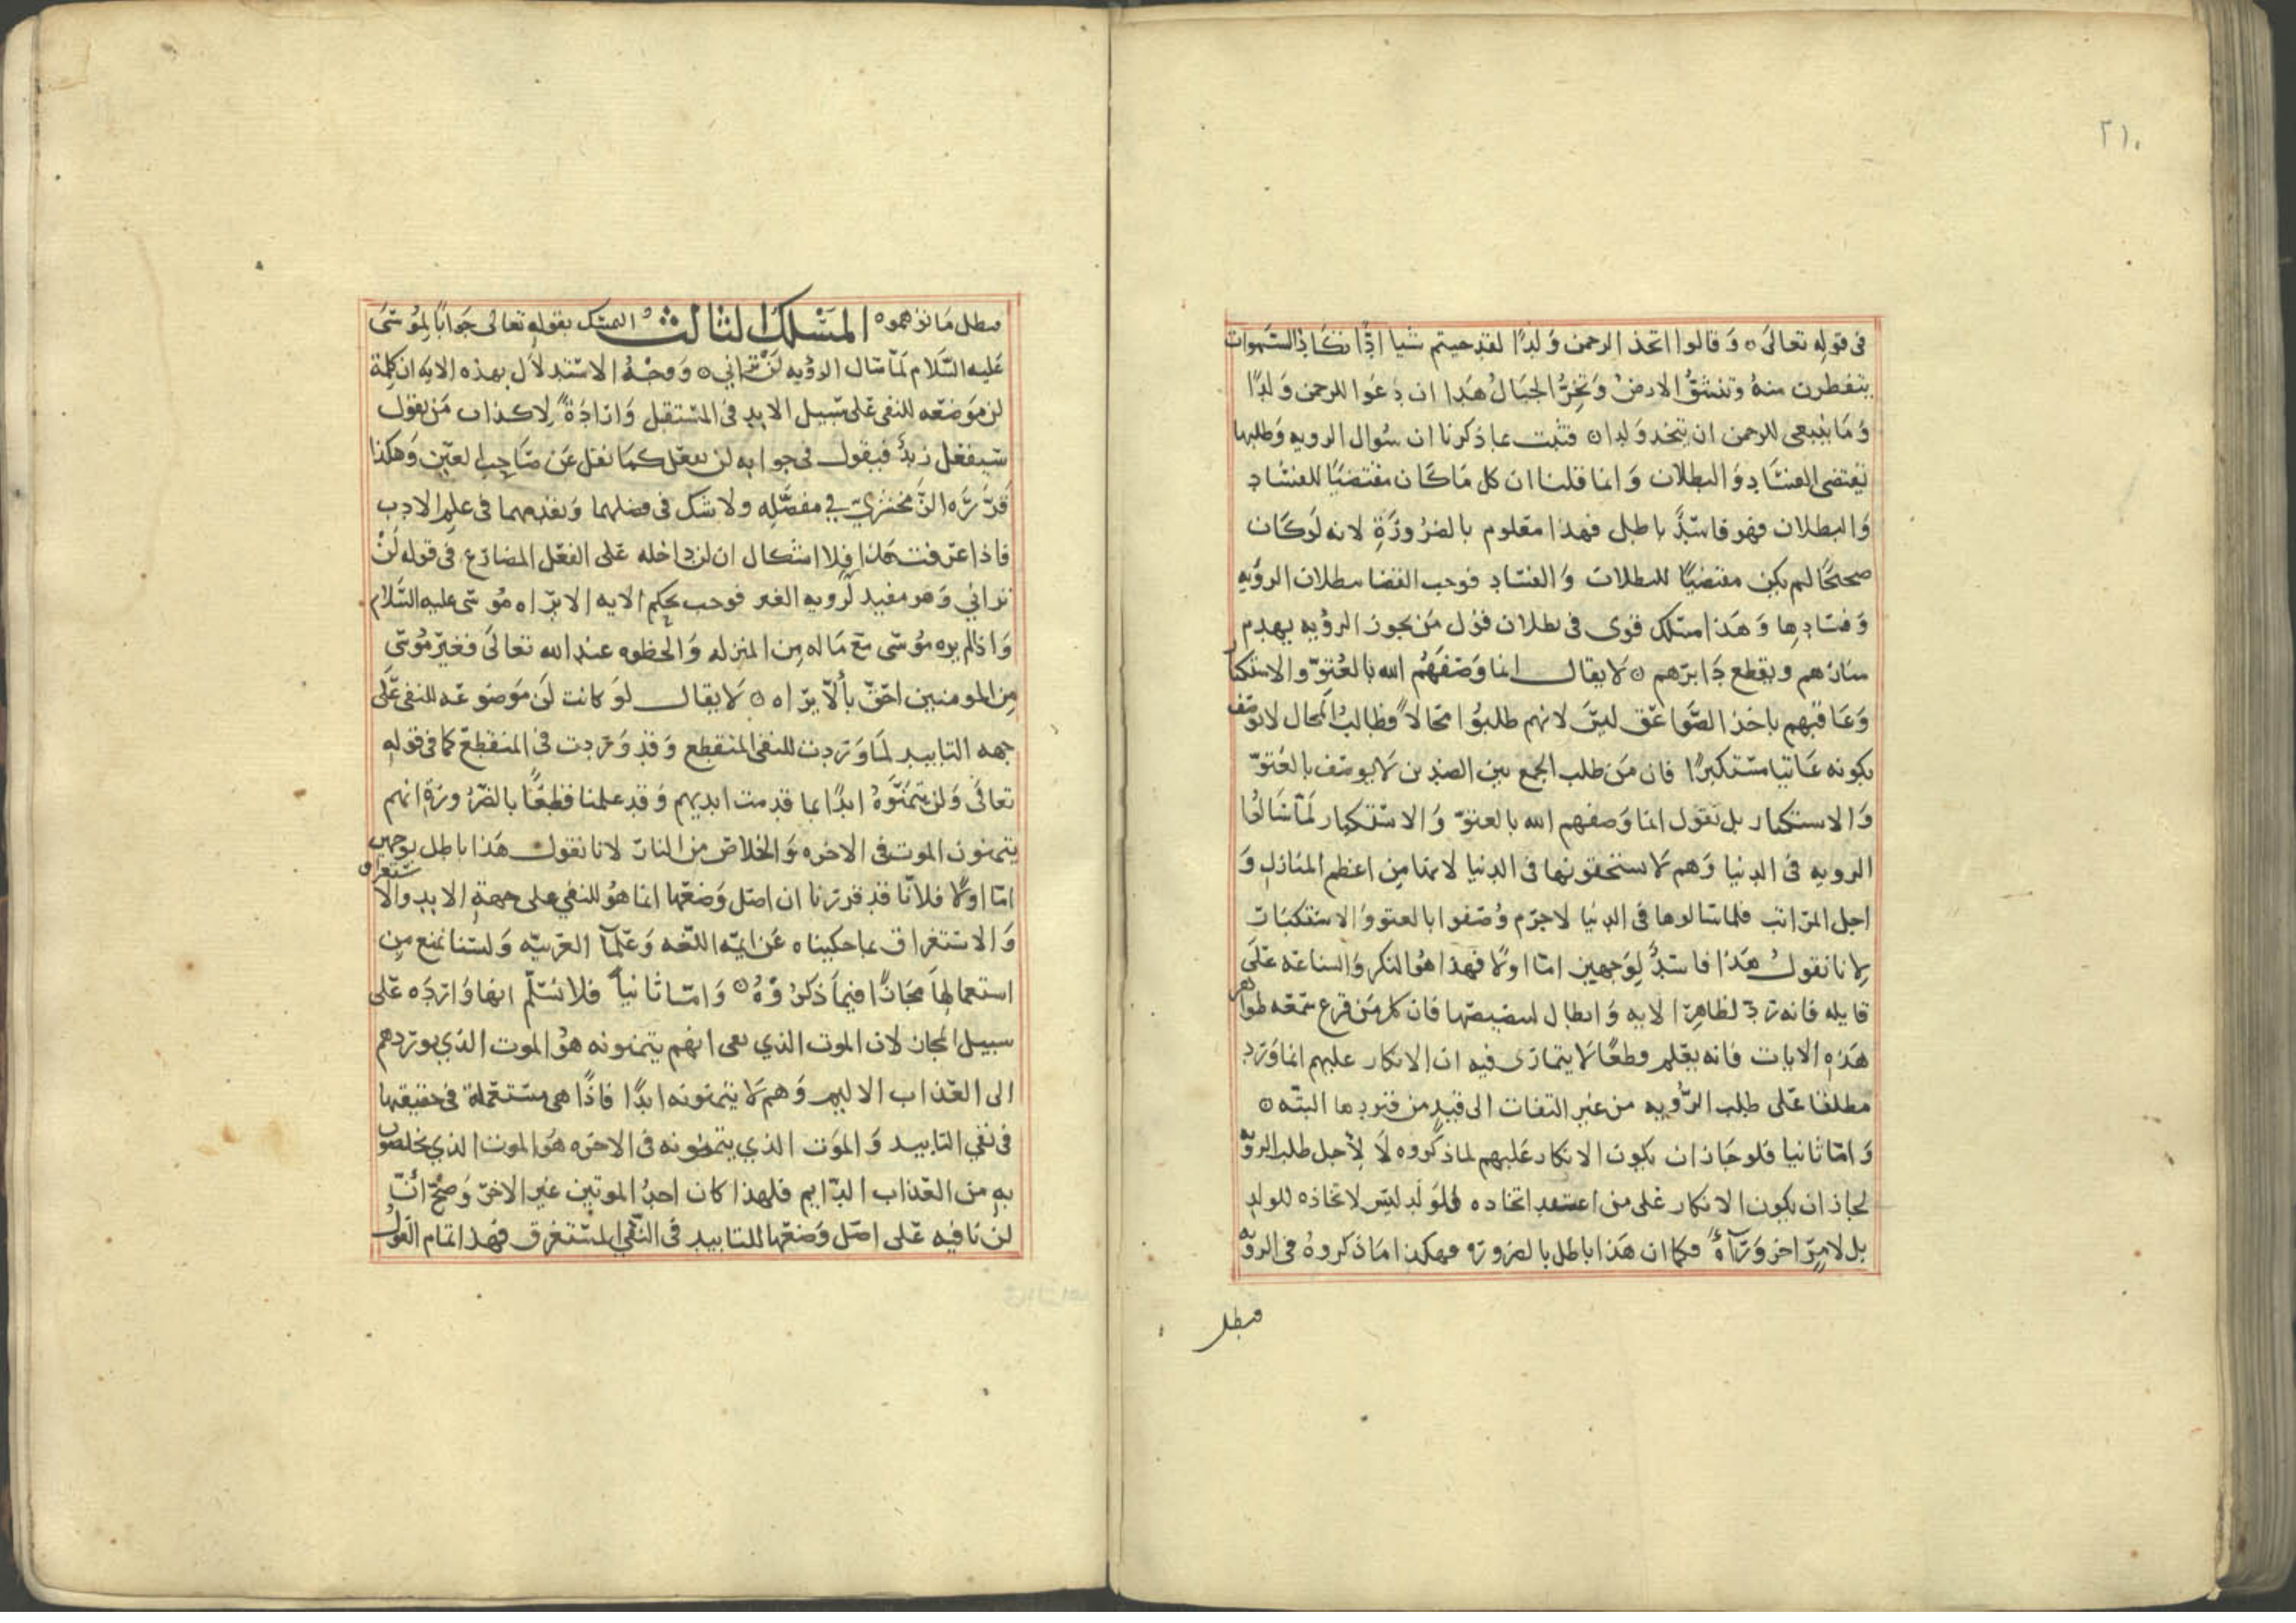 ٢١٠
في قوله تعالى ۞ وَقالوا اتخذ الرحمن وَلدًا لقد جيتم شيا ادًّا تكَاد السَّموات
يتفطرن منهُ وتنشقُّ الارضُ وَتخِرُّ الجبَالُ هَدا ان دَعَوا للرحمن وَلدًا
وَمَا ينبغي للرحمن ان يتخد وَلدا ۞ فثبت بما ذكرنا ان سُوال الرويه وَطلبها
يقتضي الفسَاد وَالبطلان وَانما قلنا ان كل مَا كَان مقتضيًا للفسَاد
وَالبطلان فهو فاسِدٌ باطل فهذا معلوم بالضرُورَةِ لانه لَو كَان
صحيحًا لم يكن مقتضيًا للبطلان وَالفسَاد فوجب القضا ببطلان الرؤيه
وَفسَادها وَهَذا مسلك قوى في بطلان قول مَن يجوز الرؤيه يهدم
منارهم ويقطع دَابرَهم ۞ لَا يقال انما وَصَفَهُم الله بالعُتوّ والاستكبار
وَعَاقبَهم باخذ الصَّواعَق ليسَ لانهم طلبوُا محَالاً فطالبُ المحال لا يوصَف
بكونه عَاتيا مسَتكبرًا فان مَن طلب الجمع بين الضدين لَا يوصَف بالعُتوّ
وَالاستكبار بل نقول انما وَصفهم الله بالعتوّ وَالاسْتكبار لَمّا سَالوُا
الرويه في الدنيا وَهم لَا يستحقونها في الدنيا لانها مِن اعظم المنازل وَ
اجل المرَاتب فلما سَالوها في الدنيَا لاجرَم وُصَفوا بالعتو وُالاسْتكبَات
لِانا نقولُ هَذا فاسَدٌ لِوَجهين امّا اولًا فهذا هوُ النكر وَالشناعَه علَى
قايله فانه رَدّ لظاهِرَ الايه وَابطال لنصيصَها فان كل مَن قرع سَمعَه ظواهر
هَذهِ الايات فانه يعَلم قطعًا لَا يتمارَى فيه ان الانكار عليهم انما وَرَد
مطلقا عَلى طلب الرُؤيه من غير التفات الى قيدٍ من قيودها البتّه ۞
وَامّا ثانيا فلو جَاز ان يكون الانكار عَليهم لما ذكروه لَا لِأجل طلب الرؤيه
لجاز ان يكون الانكار عَلى من اعتقد اتخاده وَلوَلَدٍ ليسَ لاتخاذه للولد
بل لامرٍ اخر وَرَآهُ فكما ان هَذا باطل بالضرورَه فهكذا مَا ذكروهُ في الرؤيه
فبطل
فبطل مَا توَهموه ۞ المسَلك الثالث التمسّك بقولهِ تعالى جَوابًا لِموُسَى
عَليه السَّلام لَمّا سَال الرؤيه لَنْ تَرَاني ۞ وَوجْهُ الاسْتدلاَل بهذه الايه ان كلِمَة
لن مَوضعَه للنفى عَلى سَبيل الابدِ في المسَتقبل وَارَادَةً لِاكذاب مَن يقول
سَيفعَل زيدٌ فيقول في جوابه لن يفعَل كمَا نقل عَن صَاحِب العَين وَهكذا
قَرَّرَه الزَمخشريّ في مفصَّلهِ ولا شك في فضلهما وَتقدمهما في علم الادب
فاذا عرَفت هَذا فلا اشكال ان لن داخله عَلى الفعَل المضارَع في قوله لَنْ
ترَاني وَهو مفيد لرويه الغير فوجب بحكم الايه الا يَراه موُسَى عليه السَّلام
وَاذا لم يره مُوسَى مَعَ مَا له مِن المنزله وَالحظوه عند الله تعالَى فغيرَ مُوسَى
مِن المومنين احَقّ بألّا يرَاه ۞ لَا يقال لَو كانت لَن مَوضوعَه للنفى عَلَى
جهه التابيد لمَا وَرَدت للنفى المنقطع وَقد وَرَدت في المنقطَع كما في قولهِ
تعالَى وَلن يَتَمنَّوهُ ابدًا بما قدمت ايديهم وَقد علمنا قطعًا بالضَّرُورَةِ انهم
يتمنون الموت في الاخره وَالخلاص من النارَ لانا نقول هَذا باطل بوجهين
امّا اولًا فلأنّا قد قرّرنا ان اصَل وَضعَها انما هوُ للنفي على جهةِ الابد والا ستغراق
وَالاسْتغراق بما حكيناه عَن ايمّه اللغه وَعَلمآ العَربيّه وَلسَنا نمنع مِن
استعمالها مجَازًا فيمَا ذكرُوْهُ ۞ وَامّا ثانياً فلا نسَلّم انها وَارَدَه عَلى
سبيل المجاز لان الموت الذي نعى انهم يتمنونه هوُ الموت الذي يورَدهم
الى العَذاب الاليم وَهم لَا يتمنونه ابدًا فاذًا هى مسَتعَملة في حقيقتها
في نفي التابيد وَالموَت الذي يتمنونه في الاخَره هوُ الموت الذي يخلصون
بهِ من العَذاب الدَايم فلهذا كان احدُ الموتين غير الاخَر وَصَحّ انَّ
لن نافيه عَلى اصَل وَضعَها للتابيد في النَّفي المستَغرق فهذا تمام القول